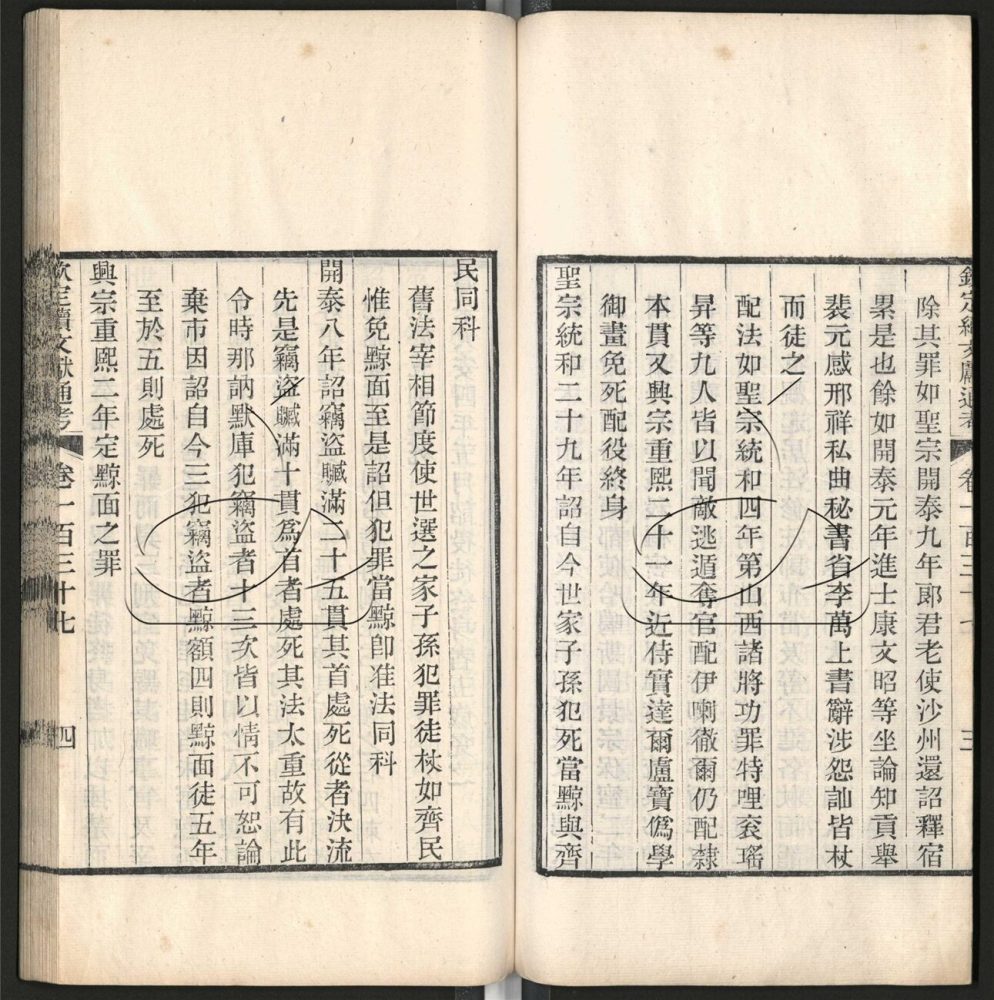 欽定續文獻通考 卷一百三十七 三
除其罪如聖宗開泰九年郎君老使沙州還詔釋宿
累是也餘如開泰元年進士康文昭等坐論知貢舉
裴元感邢祥私曲秘書省李萬上書辭涉怨訕皆杖
而徒之
配法如聖宗統和四年第山西諸將功罪特理袞瑤
昇等九人皆以聞敵逃遁奪官配伊喇徹爾仍配隸
本貫又興宗重熙二十一年近侍實達爾盧寶偽學
御畫免死配役終身
聖宗統和二十九年詔自今世家子孫犯死當黥與齊
民同科
舊法宰相節度使世選之家子孫犯罪徒杖如齊民
惟免黥面至是詔但犯罪當黥卽准法同科
開泰八年詔竊盜贓滿二十五貫其首處死從者決流
先是竊盜贓滿十貫爲首者處死其法太重故有此
令時那訥默庫犯竊盜者十三次皆以情不可恕論
棄市因詔自今三犯竊盜者黥額四則黥面徒五年
至於五則處死
興宗重熙二年定黥面之罪
欽定續文獻通考 卷一百三十七 四